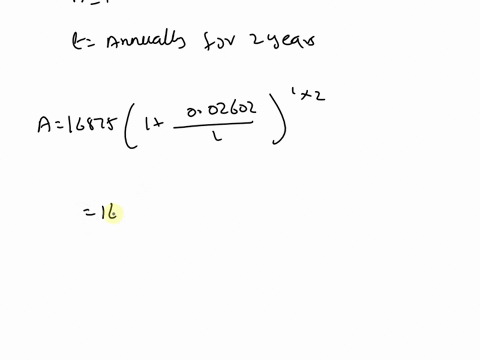 t= Annually for 2 years
A=16875(1+ 0.02602/1)^1×2
=16